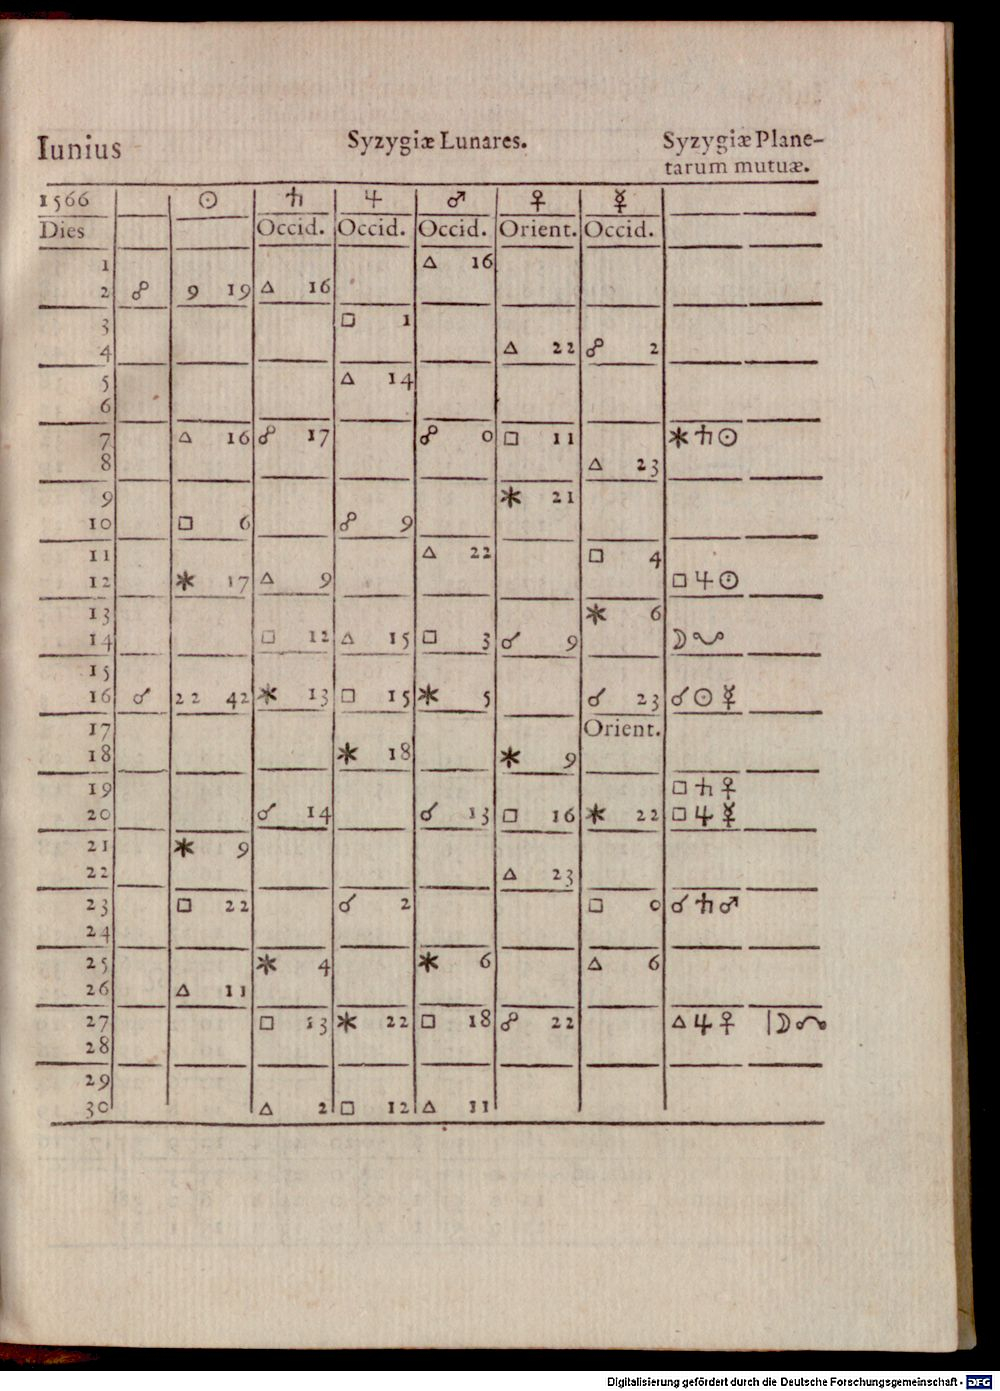 Iunius Syzygiæ Lunares. Syzygiæ Plane-
tarum mutuæ.
1566 ☉ ♄ ♃ ♂ ♀ ☿
Dies Occid. Occid. Occid. Orient. Occid.
1 △ 16
2 ☍ 9 19 △ 16
3 □ 1
4 △ 22 ☍ 2
5 △ 14
6
7 △ 16 ☍ 17 ☍ 0 □ 11 ⚹ ♄ ☉
8 △ 23
9 ⚹ 21
10 □ 6 ☍ 9
11 △ 22 □ 4
12 ⚹ 17 △ 9 □ ♃ ☉
13 ⚹ 6
14 □ 12 △ 15 □ 3 ☌ 9 ☽ ☋
15
16 ☌ 22 42 ⚹ 13 □ 15 ⚹ 5 ☌ 23 ☌ ☉ ☿
17 Orient.
18 ⚹ 18 ⚹ 9
19 □ ♄ ♀
20 ☌ 14 ☌ 13 □ 16 ⚹ 22 □ ♃ ☿
21 ⚹ 9
22 △ 23
23 □ 22 ☌ 2 □ 0 ☌ ♄ ♂
24
25 ⚹ 4 ⚹ 6 △ 6
26 △ 11
27 □ 13 ⚹ 22 □ 18 ☍ 22 △ ♃ ♀ | ☽ ☊
28
29
30 △ 2 □ 12 △ 11
Digitalisierung gefördert durch die Deutsche Forschungsgemeinschaft - DFG